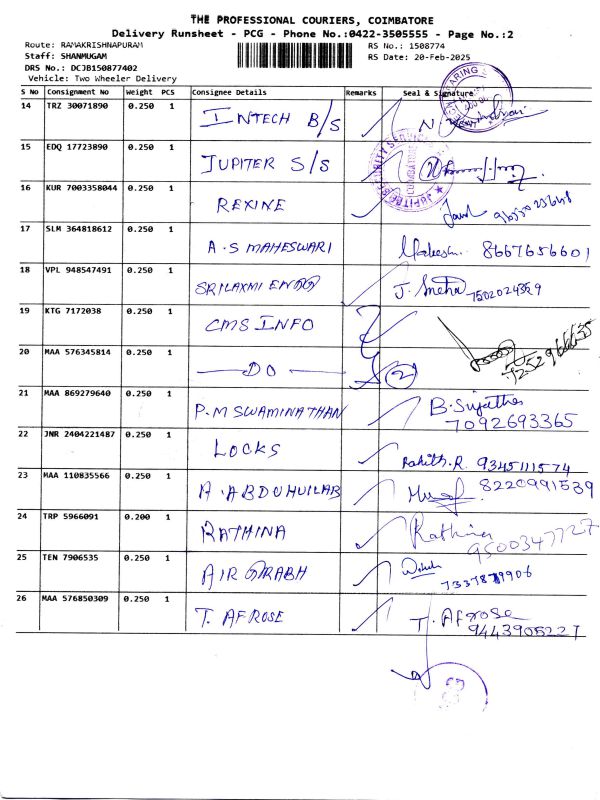 THE PROFESSIONAL COURIERS, COIMBATORE
Delivery Runsheet - PCG - Phone No.:0422-3505555 - Page No.:2
Route: RAMAKRISHNAPURAM RS No.: 1508774
Staff: SHANMUGAM RS Date: 20-Feb-2025
DRS No.: DCJB150877402
Vehicle: Two Wheeler Delivery
S No Consignment No Weight PCS Consignee Details Remarks Seal & Signature
14 TRZ 30071890 0.250 1 INTECH B/S
15 EDQ 17723890 0.250 1 JUPITER S/S
16 KUR 7003358044 0.250 1 REXINE
17 SLM 364818612 0.250 1 A.S MAHESWARI 8667656601
18 VPL 948547491 0.250 1 SRI LAXMI ENGG J. Sneha 7502024359
19 KTG 7172038 0.250 1 CMS INFO
20 MAA 576345814 0.250 1 —DO— (2) 7252966635
21 MAA 869279640 0.250 1 P.M SWAMINATHAN B. Sujatha 7092693365
22 JNR 2404221487 0.250 1 LOCKS Rakith.R. 9345111574
23 MAA 110835566 0.250 1 A.ABDUHUILAB 8220991539
24 TRP 5966091 0.200 1 RATHINA Rathina 9500347727
25 TEN 7906535 0.250 1 AIR GRABH 7337879906
26 MAA 576850309 0.250 1 T. AFROSE T. Afrose 9443905227